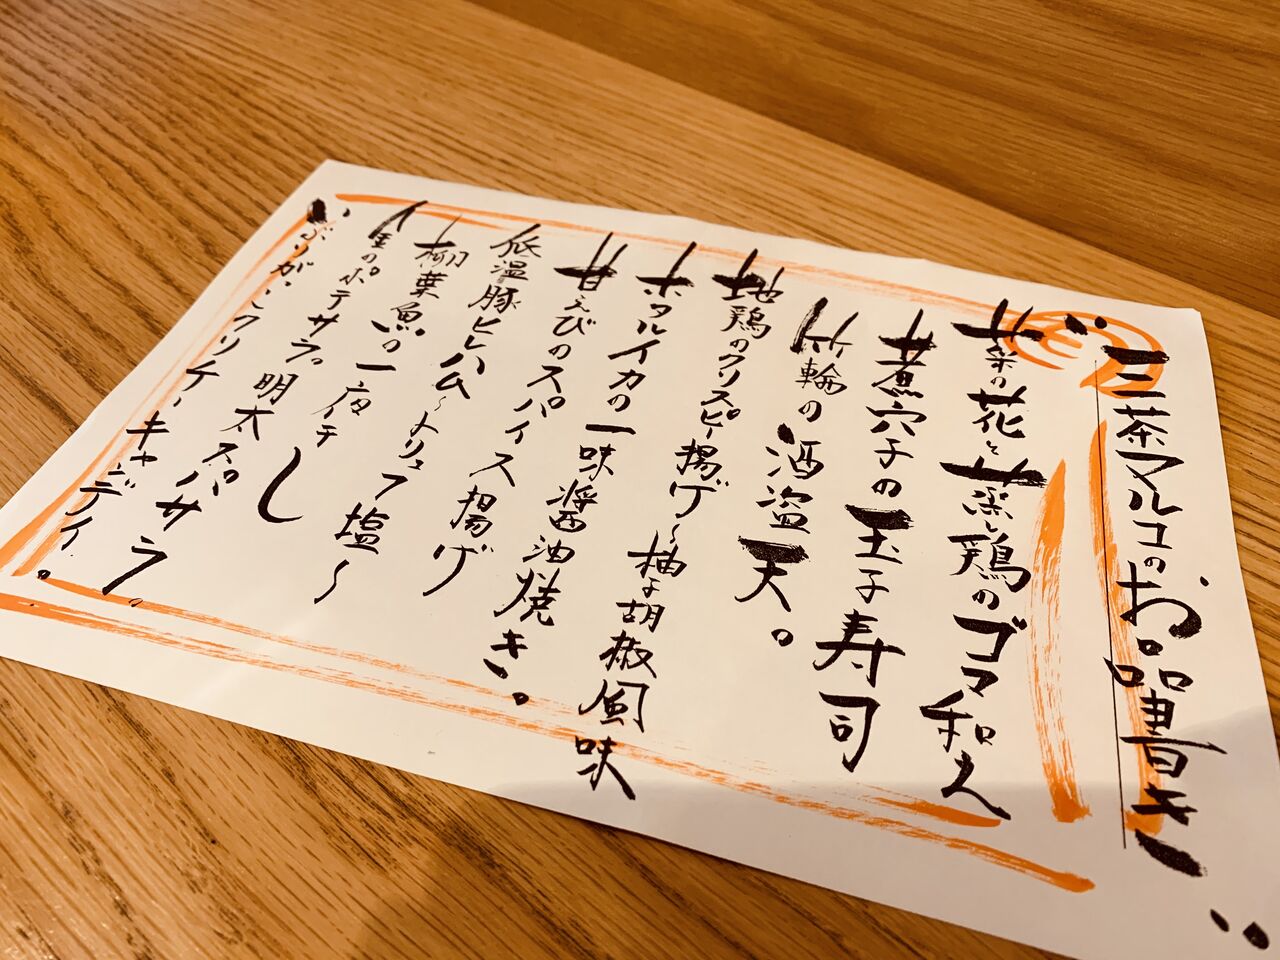 三茶マルコのお品書き
菜の花と蒸し鶏のゴマ和え
煮穴子の玉子寿司
竹輪の酒盗天。
地鶏のクリスピー揚げ〜柚子胡椒風味
ホタルイカの一味醤油焼き。
甘えびのスパイス揚げ
低温豚ヒレハム〜トリュフ塩〜
柳葉魚の一夜干し
のポテサラ。明太スパサラ。
いぶりがっこクリチーキャンディ。